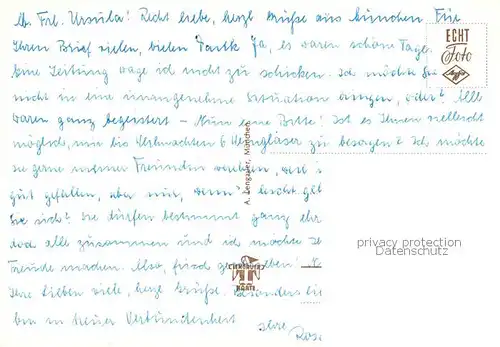 Lb. Frl. Ursula! Recht liebe, herzl. Grüße aus München Für
Ihren Brief vielen, vielen Dank Ja, es waren schöne Tage.
Eine Zeitung wage ich nicht zu schicken. Ich möchte Sie
nicht in eine unangenehme Situation bringen, oder? Alle
waren ganz begeistert - Nun eine Bitte! Ist es Ihnen vielleicht
möglich, mir bis Weihnachten 6 Weingläser zu besorgen? Ich möchte
sie gerne meiner Freundin
gut gefallen, aber nur, wenn leicht
Sie sich! Sie dürfen bestimmt ganz
doch alle zusammen und ich möchte
Freude machen. Also,
Ihre lieben viele, herzl. Grüße. Besonders
bin in treuer Verbundenheit
Ihre
ECHT
Foto
Agfa
A. Lengauer, München
privacy protection
Datenschutz